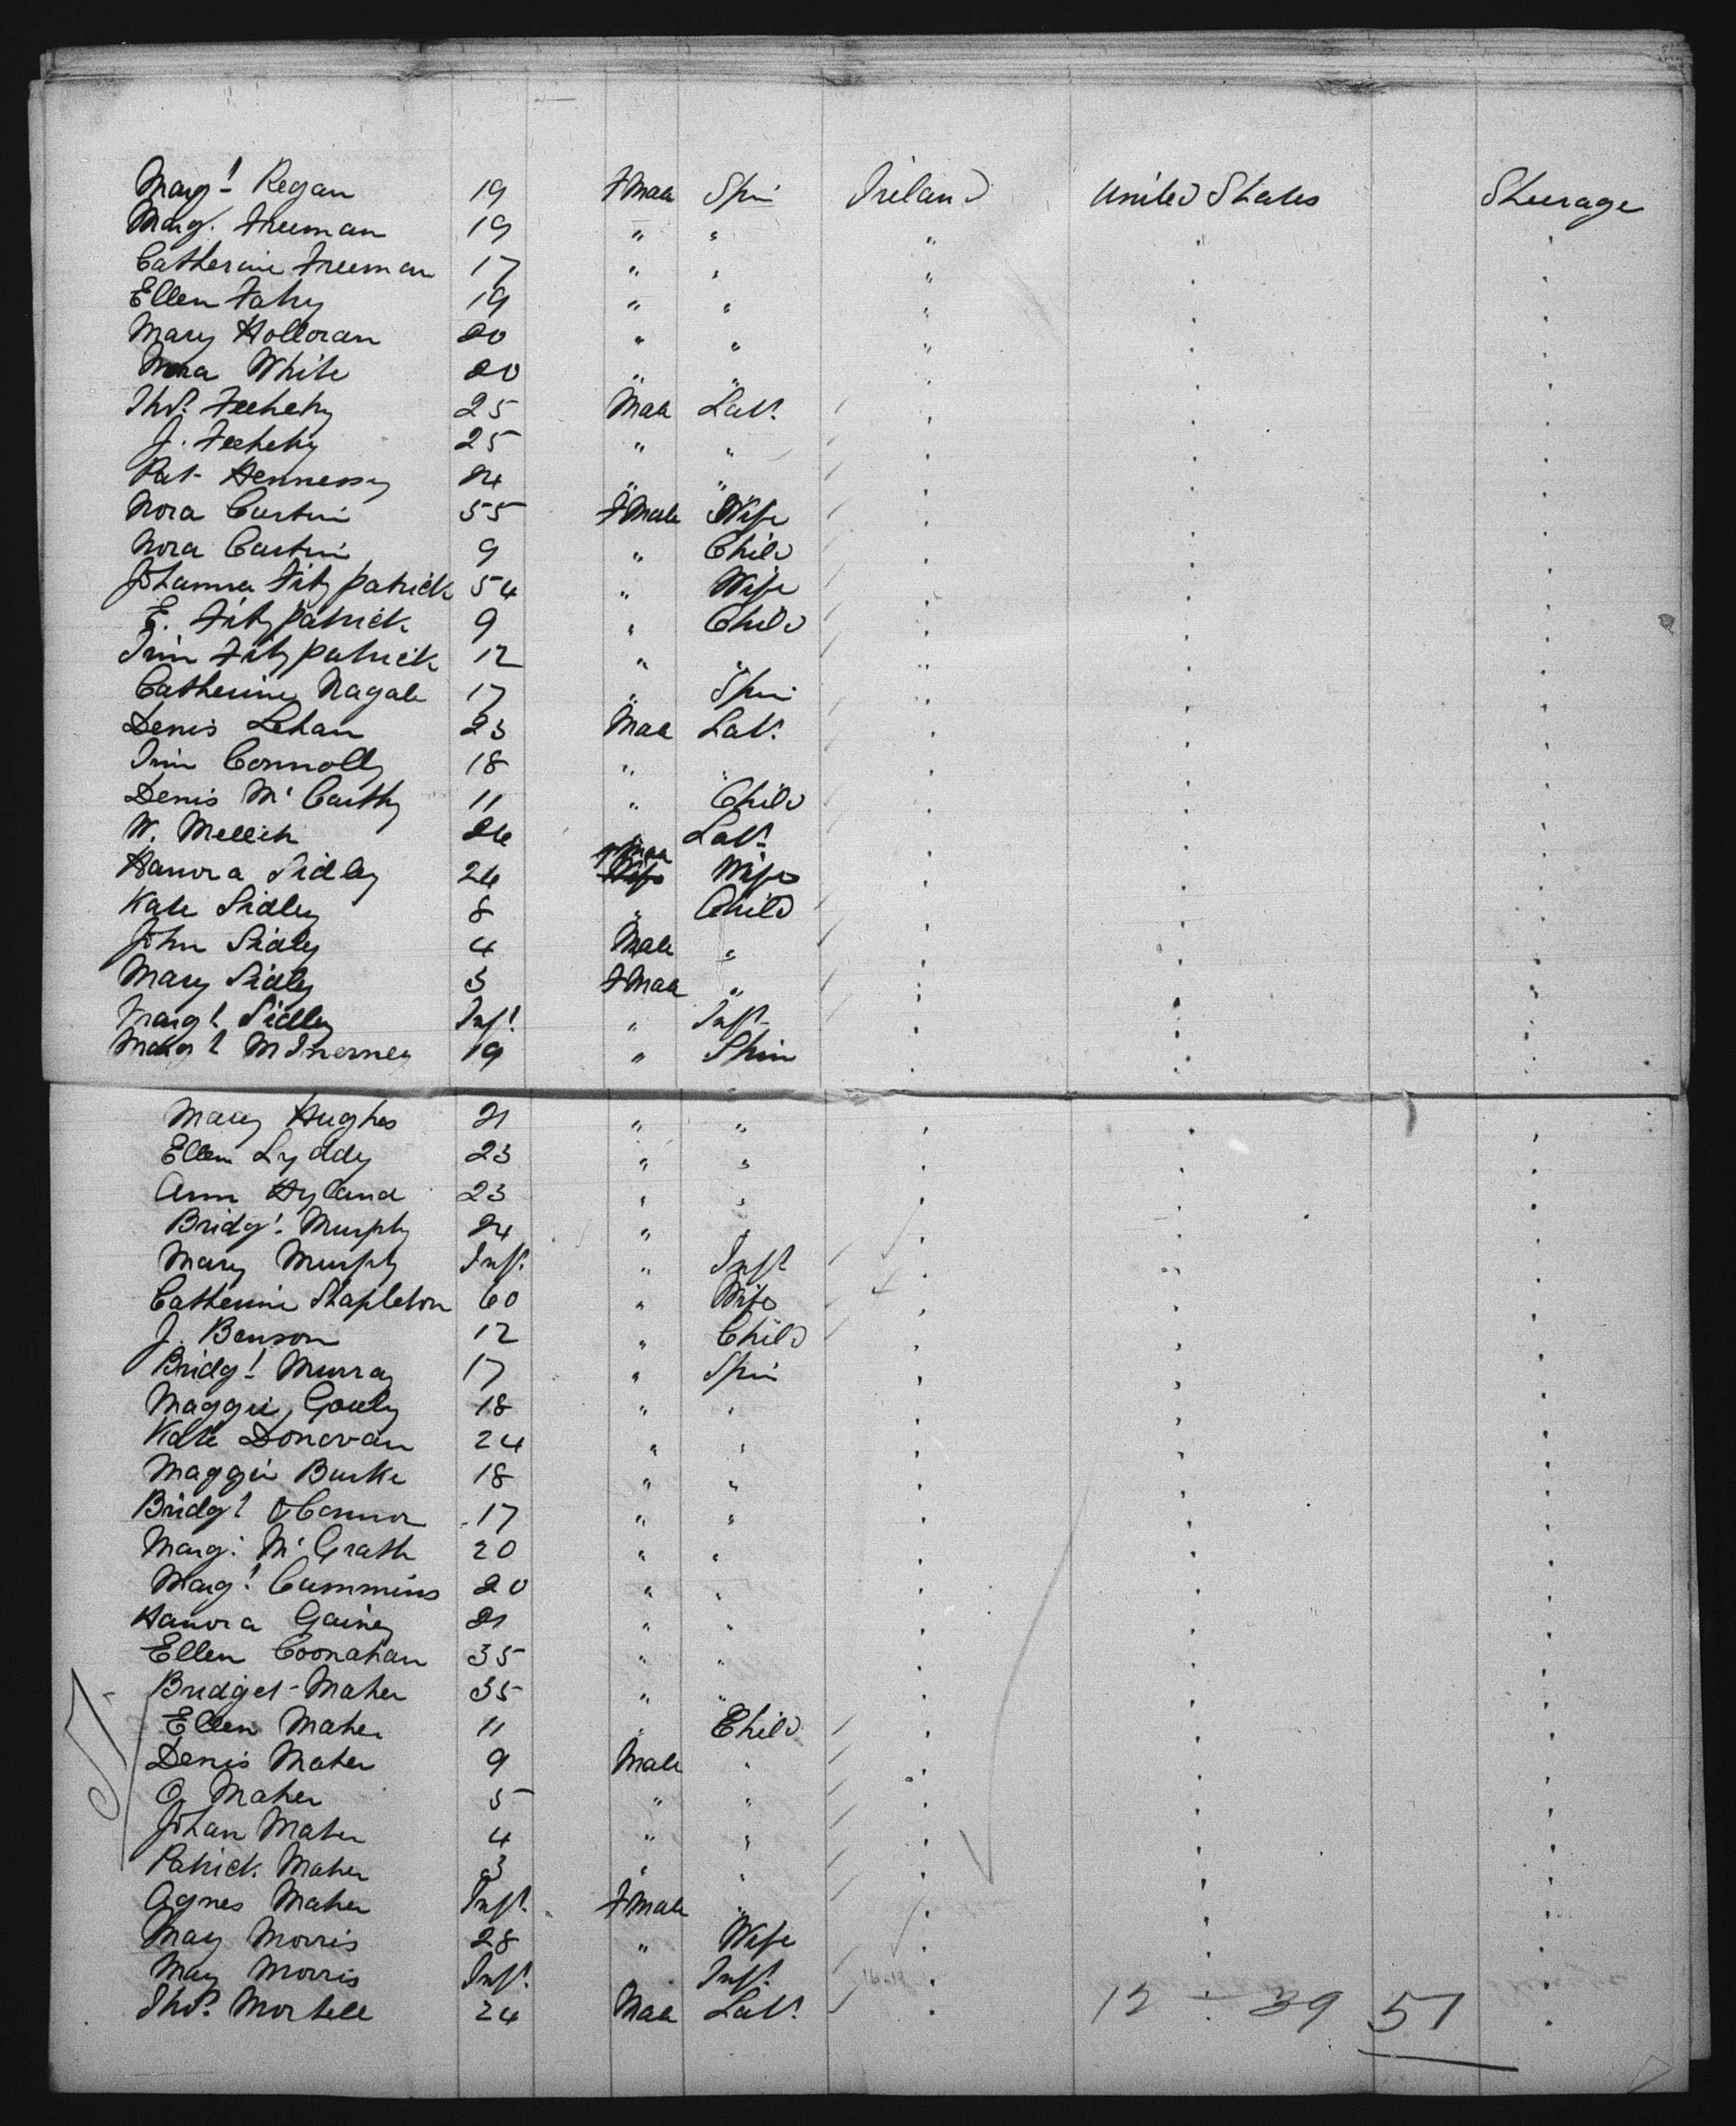 Margt Regan 19 Fmale Spin Ireland United States Steerage
Marg. Freeman 19 " " " " "
Catherine Freeman 17 " " " " "
Ellen Fahy 19 " " " " "
Mary Holloran 20 " " " " "
Nora White 20 " " " " "
Thos. Feehely 25 Male Lab. " " "
J. Feehely 25 " " " " "
Pat Hennessy 24 " " " " "
Nora Curtin 55 Fmale Wife " " "
Nora Curtin 9 " Child " " "
Johanna Fitzpatrick 54 " Wife " " "
E. Fitzpatrick 9 " Child " " "
Jim Fitzpatrick 12 " " " " "
Catherine Nagale 17 " Spin " " "
Denis Lehan 23 Male Lab. " " "
Jim Connolly 18 " " " " "
Denis McCarthy 11 " Child " " "
W. Mellich 26 " Lab. " " "
Hanora Sidley 26 Fmale Wife " " "
Kate Sidley 8 " Child " " "
John Sidley 4 Male " " " "
Mary Sidley 3 Fmale " " " "
Margt Sidley Inft " Inft " " "
Margt McInerney 19 " Spin " " "
Mary Hughes 21 " " " " "
Ellen Lyddy 23 " " " " "
Ann Hyland 23 " " " " "
Bridgt Murphy 24 " " " " "
Mary Murphy Inft " Inft " " "
Catherine Stapleton 60 " Wife " " "
J. Benson 12 " Child " " "
Bridgt Murray 17 " Spin " " "
Maggie 18 " " " " "
Kate Donovan 24 " " " " "
Maggie Burke 18 " " " " "
Bridgt OConnor 17 " " " " "
Marg. McGrath 20 " " " " "
Margt Cummins 20 " " " " "
Hanora Gainey 21 " " " " "
Ellen Coonahan 35 " " " " "
Bridget Maher 35 " " " " "
Ellen Maher 11 " Child " " "
Denis Maher 9 Male " " " "
O. Maher 5 " " " " "
Johan Maher 4 " " " " "
Patrick Maher 3 " " " " "
Agnes Maher Inft Fmale " " " "
May Morris 28 " Wife " " "
May Morris Inft Inft " " "
Thos. Mortell 24 Male Lab. " 12 - 39 51 "